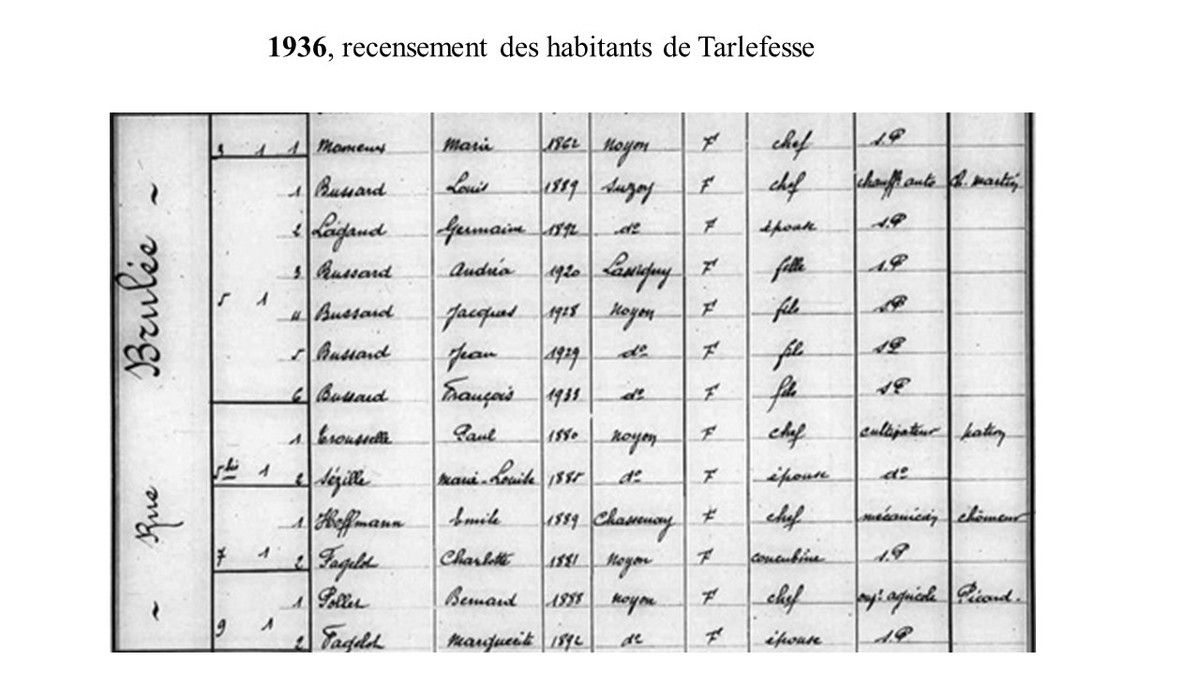 1936, recensement des habitants de Tarlefesse
~ Rue Brulée ~
3 1 1 Mameux Marie 1862 Noyon F chef s.P
1 Bussard Louis 1889 Suzoy F chef chauffr auto Ch. Martin
2 Lagand Germaine 1892 do F épouse s.P
3 Bussard Andréa 1920 Lassigny F fille s.P
5 1 4 Bussard Jacques 1928 Noyon F fils sP
5 Bussard Jean 1929 do F fils sP
6 Bussard François 1933 do F fils sP
1 Trousselle Paul 1880 Noyon F chef cultivateur patron
5bis 1 2 Sézille Marie-Louise 1885 do F épouse do
1 Hoffmann Emile 1889 F chef mécanicien chômeur
7 1 2 Charlotte 1881 Noyon F concubine s.P
1 Bernard 1888 Noyon F chef ouvr agricole Picard.
9 1 2 Marguerite 1892 do F épouse s.P